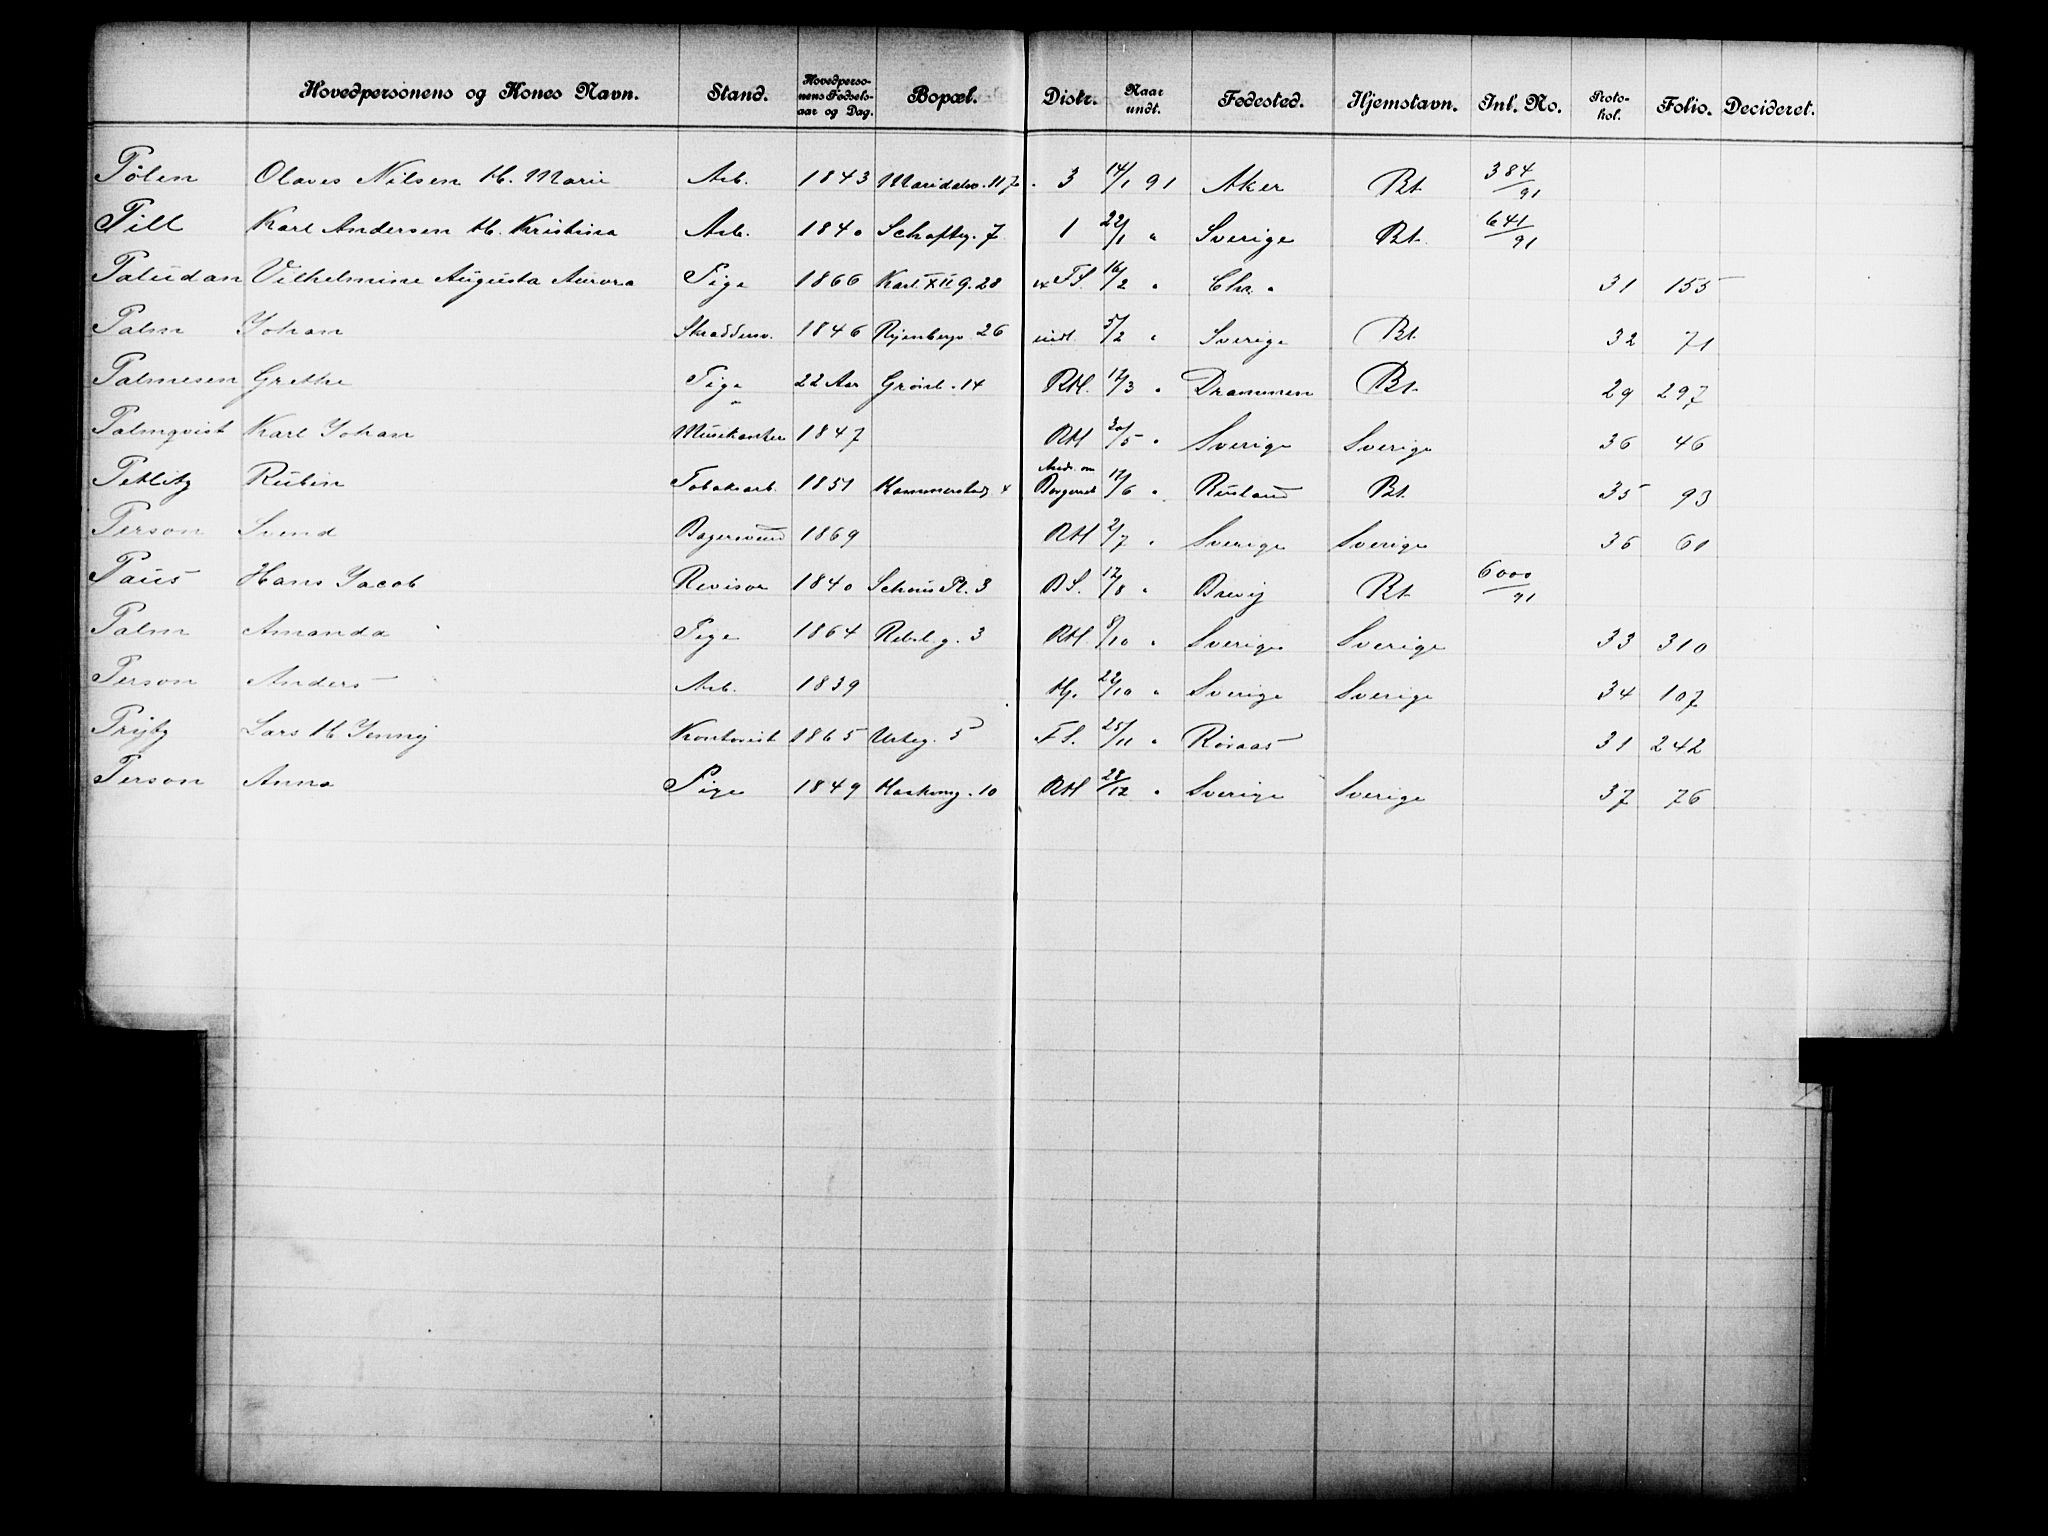 Hovedpersonens og Kones Navn. Stand. Hovedpersonens Fødselsaar og Dag. Bopæl. Distr. Naar undt. Fødested. Hjemstavn. Inl. No. Protokol. Folio. Decideret.
Pølen Olaves Nilsen H. Marie Arb. 1843 Maridalsv. 117 3 14/1 91 Aker Bt. 384/91
Pill Karl Andersen H. Kristina Arb. 1840 Schaftg. 7 1 22/1 " Sverige Bt. 641/91
Paludan Vilhelmine Augusta Aurora Pige 1866 Karl XII g. 28 FS. 16/2 " Chr. " 31 155
Palm Johan Skræddersv. 1846 Ryenbergv. 26 indl. 5/2 " Sverige Bt. 32 71
Palmesen Grethe Pige 22 Aar Grønl. 14 RH. 12/3 " Drammen Bt. 29 297
Palmqvist Karl Johan Musikanter 1847 RH 20/5 " Sverige Sverige 36 46
Rubin Tobaksarb. 1851 Hammerstadg. 4 12/6 " Rusland Bt. 35 93
Person Svend Bagersvend 1869 RH 2/7 " Sverige Sverige 36 61
Paus Hans Jacob Revisor 1840 Schous Pl. 3 BS. 12/8 " Brevig Bt. 6000/91
Palm Amanda Pige 1864 Rebsl.g. 3 RH 8/10 " Sverige Sverige 33 310
Person Anders Arb. 1839 Hj. 22/10 " Sverige Sverige 34 107
Prÿtz Lars H Jenny Kontorist 1865 Urteg. 5 FS. 25/11 " Røraas 31 242
Person Anna Pige 1849 10 RH 28/12 " Sverige Sverige 37 76